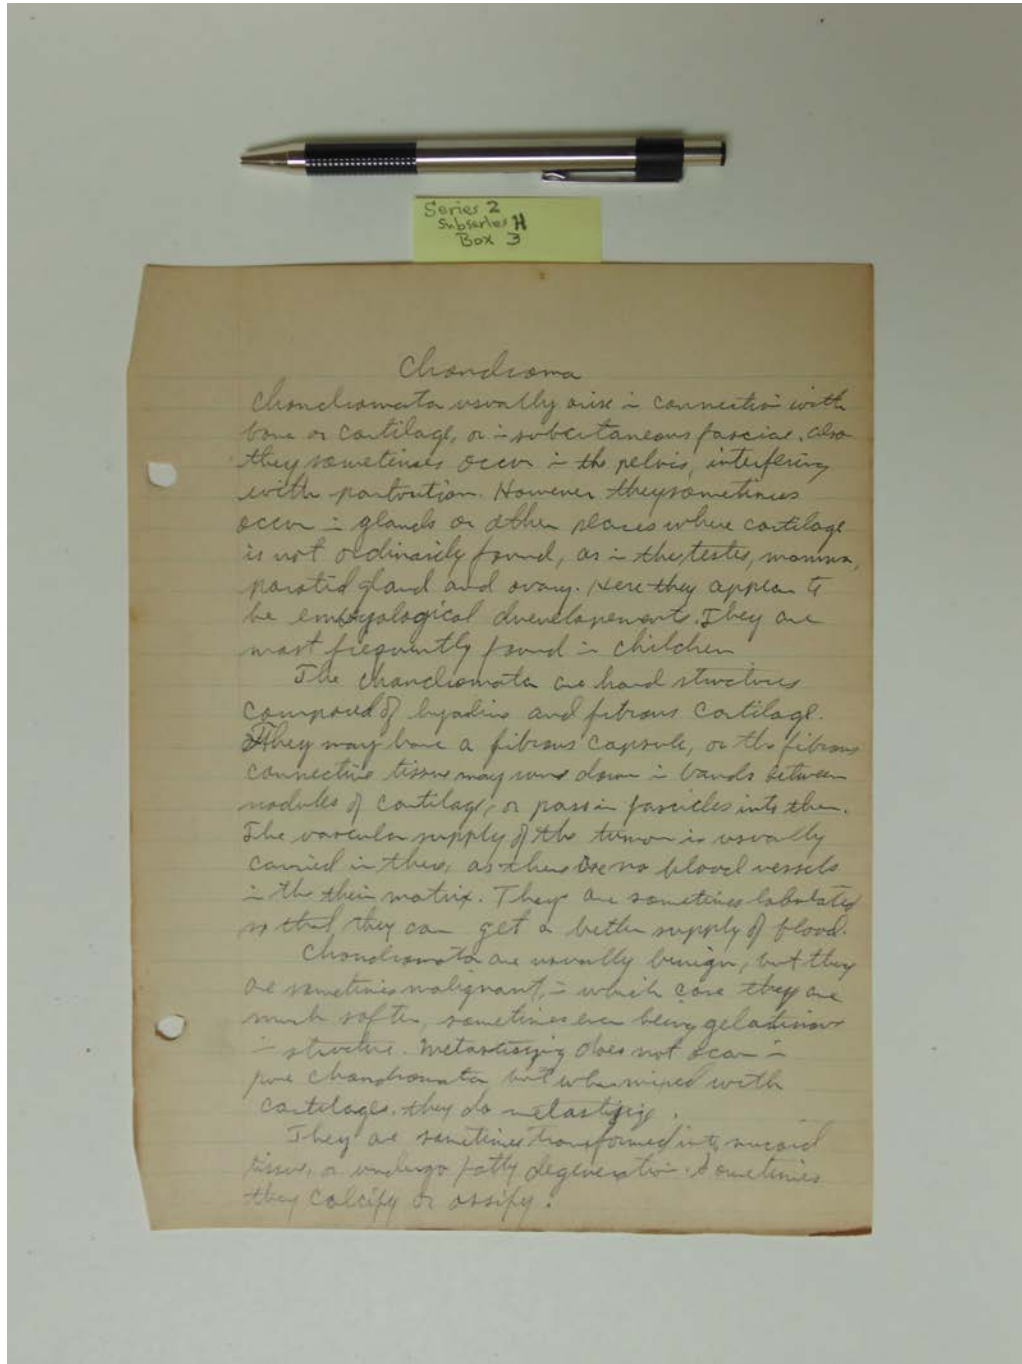 Series 2
Subseries H
Box 3
Chondroma
Chondromata usually arise in connection with
bone or cartilage, or in subcutaneous fasciae. also
they sometimes occur in the pelvis, interfering
with parturition. However they sometimes
occur in glands or other places where cartilage
is not ordinarily found, as in the, testes, mamma,
parotid gland and ovary. Here they appear to
be embryological developements. They are
most frequently found in children
The chondromata are hard structures
composed of hyaline and fibrous cartilage.
They may have a fibrous capsule, or the fibrous
connective tissue may run down in bands between
nodules of cartilage, or pass in fascicles into them.
The vascular supply of the tumor is usually
carried in these, as there are no blood vessels
in the their matrix. They are sometimes lobulated
so that they can get a better supply of blood.
Chondromata are usually benign, but they
are sometimes malignant, in which case they are
much softer, sometimes even being gelatinous
in structure. Metastisizing does not occur in
pure chondromata, but when mixed with
cartilages, they do
They are sometimes transformed into mucoid
tissue, or undergo fatty degeneration. Sometimes
they calcify or ossify.